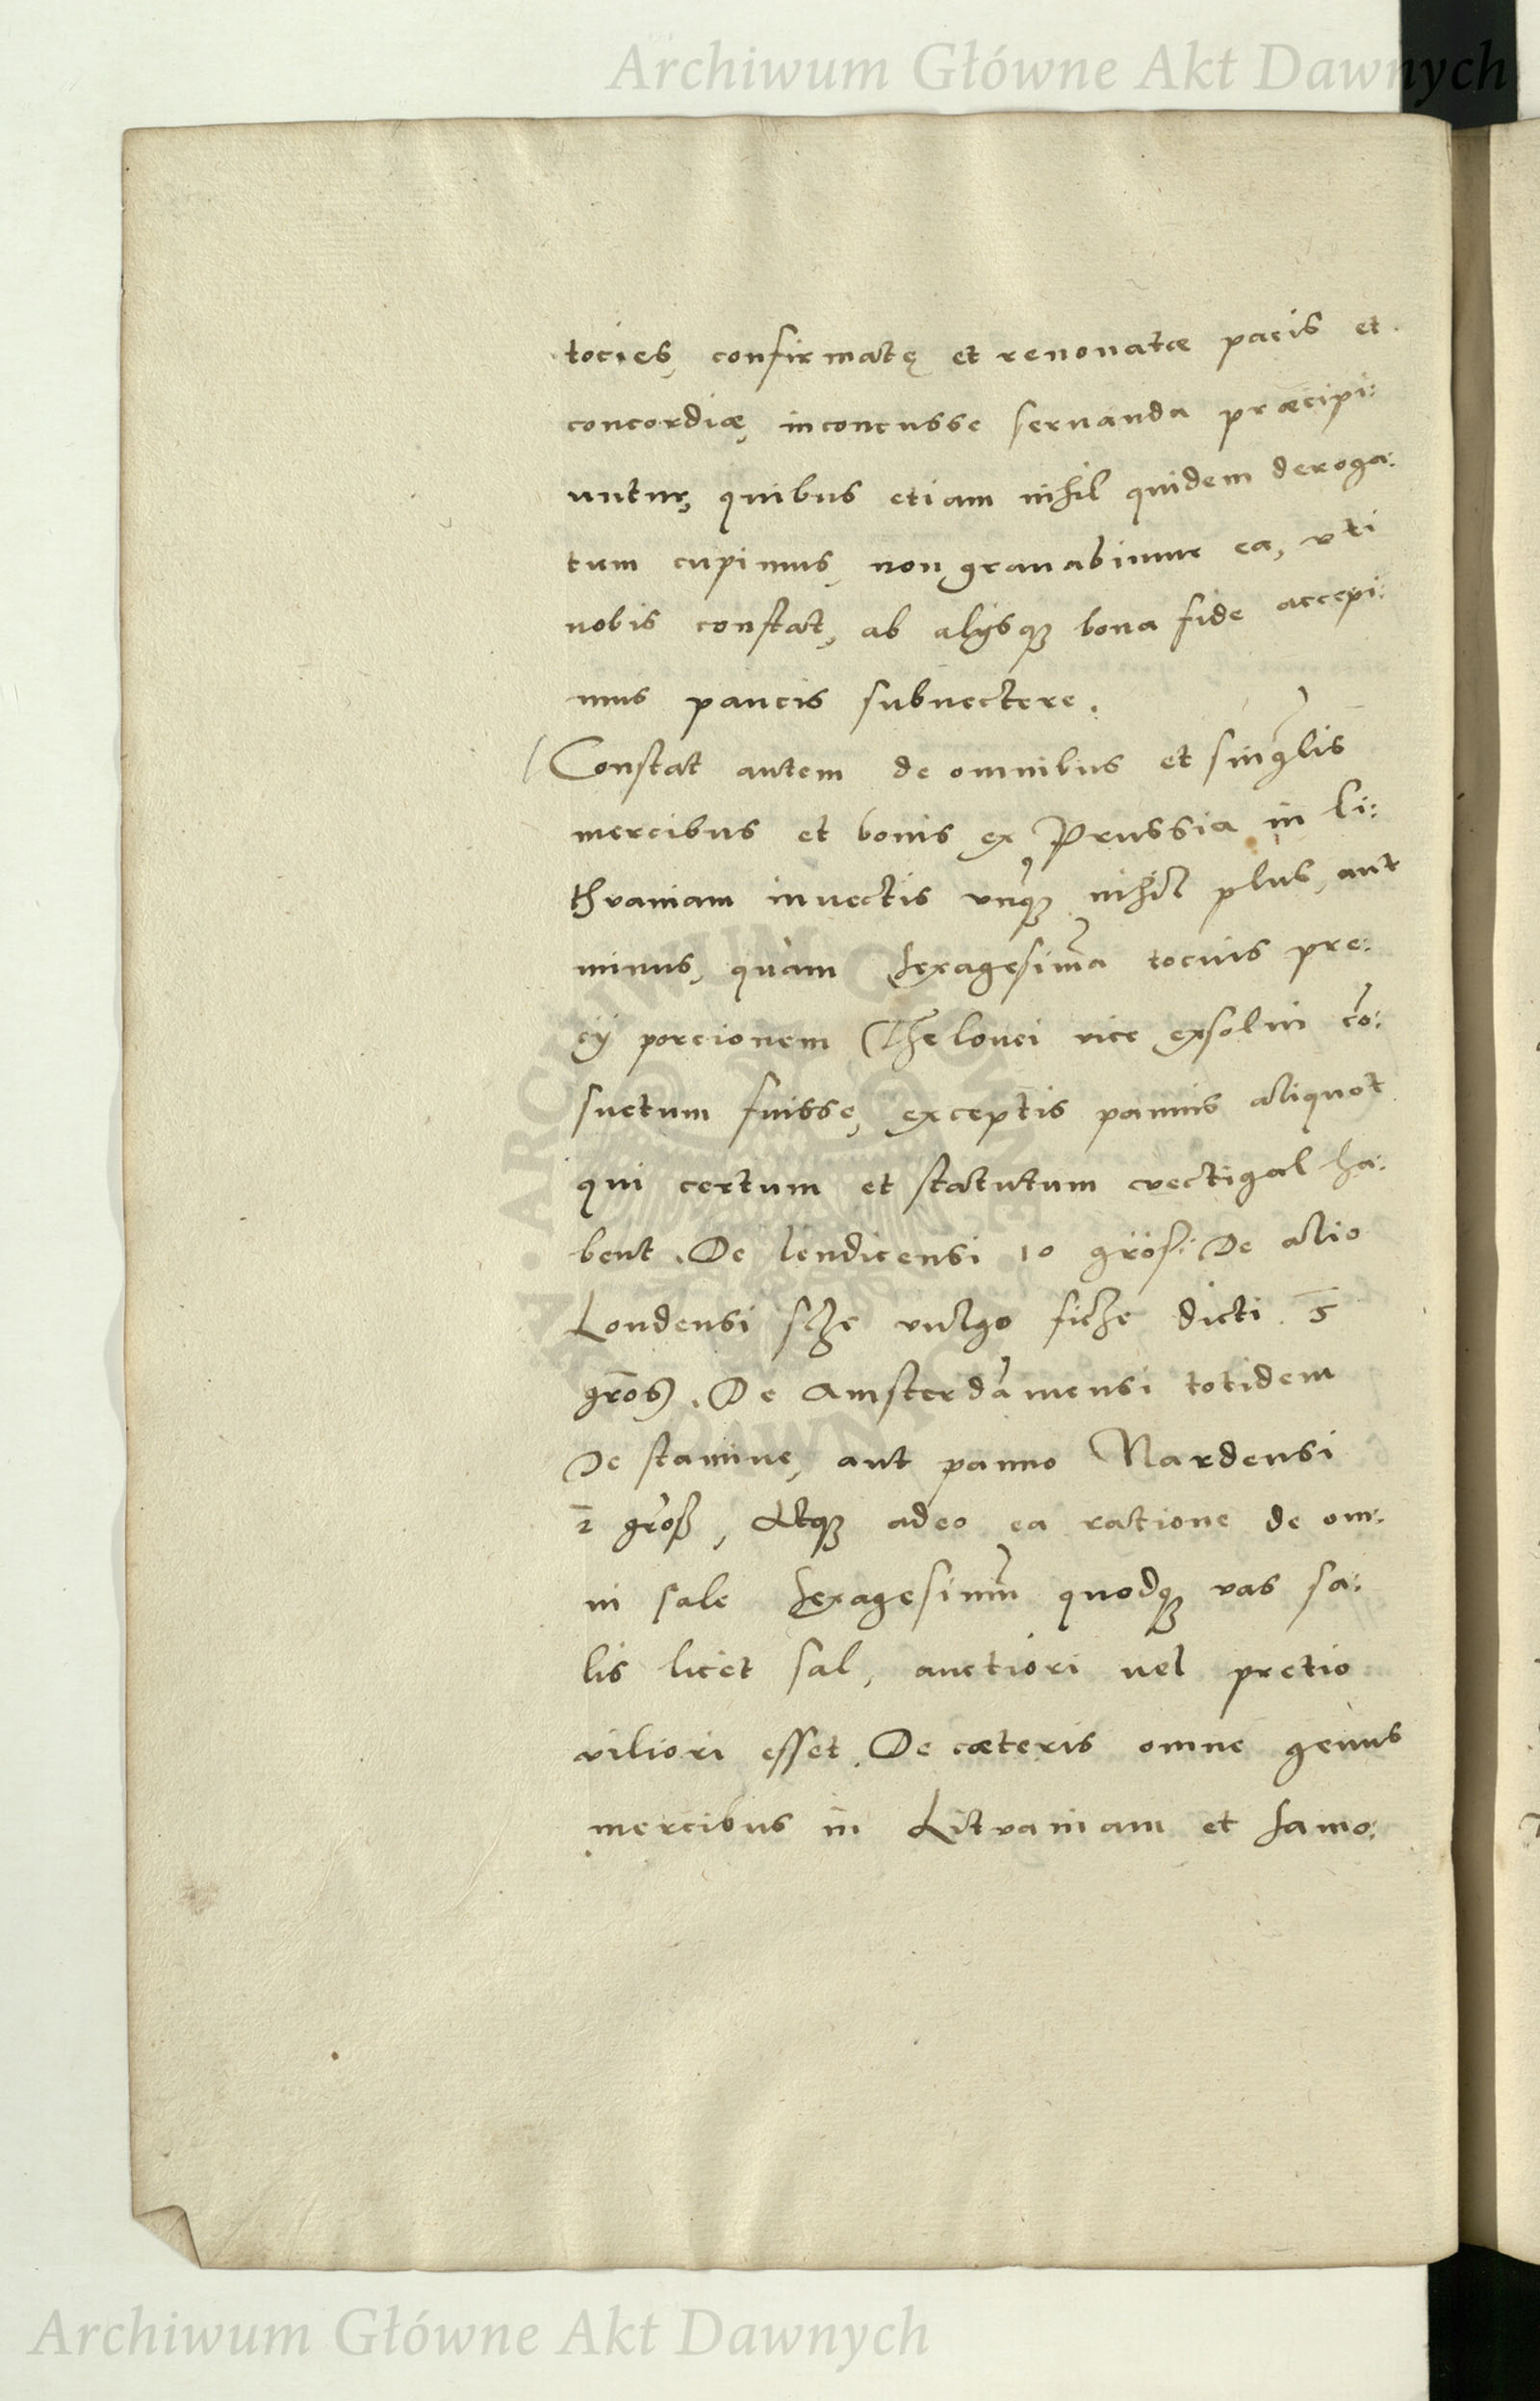 Archiwum Główne Akt Dawnych
tocies, confirmatę et renouatæ pacis et
concordiæ, inconcusse seruanda præcipi:
untur, quibus etiam nihil quidem deroga:
tum cupimus, non grauabimur ea, vti
nobis constat, ab alijsq3 bona fide accepi:
mus paucis subnectere.
Constat autem de omnibus et singulis
mercibus et bonis ex Prussia in Li:
thvaniam inuectis vnq3 nihil plus, aut
minus, quàm sexagesima tocius pre:
cij porcionem Thelonei vice exsolui cō:
suetum fuisse, exceptis pannis aliquot
qui certum et statutum vectigal ha:
bent. De lendicensi 10 gros: De alio
Londensi vulgo dicti 5
gros. De Amsterdāmensi totidem
De stamine, aut panno Nardensi
2 groß, Atq3 adeo ea ratione de om:
ni sale sexagesimū quodq3 vas sa:
lis licet sal, auctiori uel pretio
viliori esset. De cæteris omne genus
mercibus in Litvaniam et Samo:
Archiwum Główne Akt Dawnych